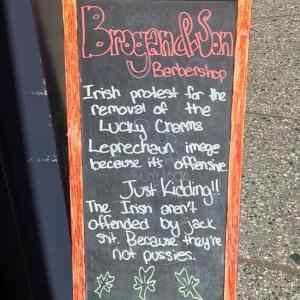 Brogan&Son
Barbershop
Irish protest for the
removal of the
Lucky Charms
Leprechaun image
because its offensive
Just Kidding!!
The Irish aren't
offended by jack
shit. Because they're
not pussies.